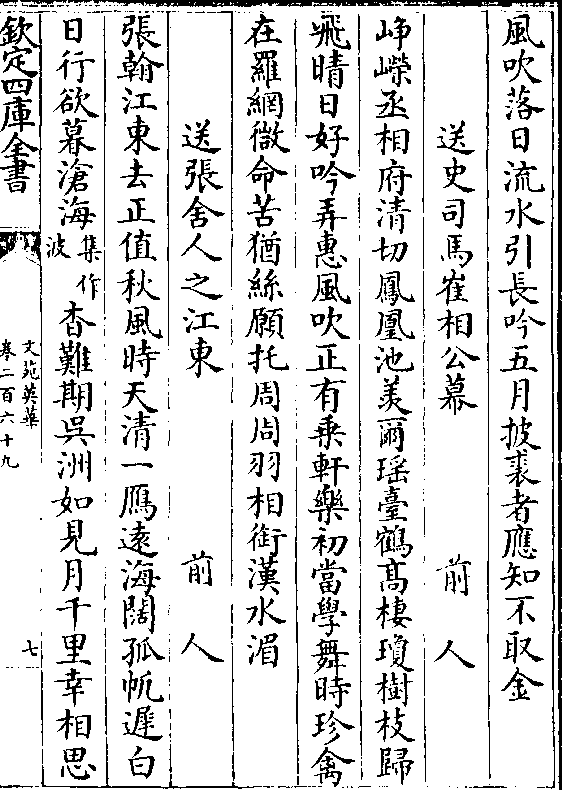 風吹落日流水引長吟五月披裘者應知不取金
送史司馬崔相公幕 前人
崢嶸丞相府清切鳳凰池羙爾瑶臺鶴髙棲瓊樹枝歸
飛晴日好吟弄惠風吹正有乗軒樂初當學舞時珍禽
在羅網微命苦猶絲願托周周羽相銜漢水湄
送張舍人之江東 前人
張翰江東去正值秋風時天清一鴈逺海闊孤帆遲白
日行欲暮滄海集作波杳難期吳洲如見月千里幸相思
欽定四庫全書
文苑英華
卷二百六十九
七